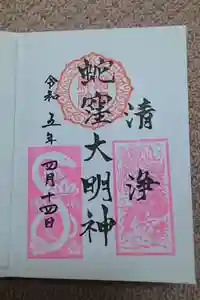 清浄
蛇窪大明神
令和五年四月十四日